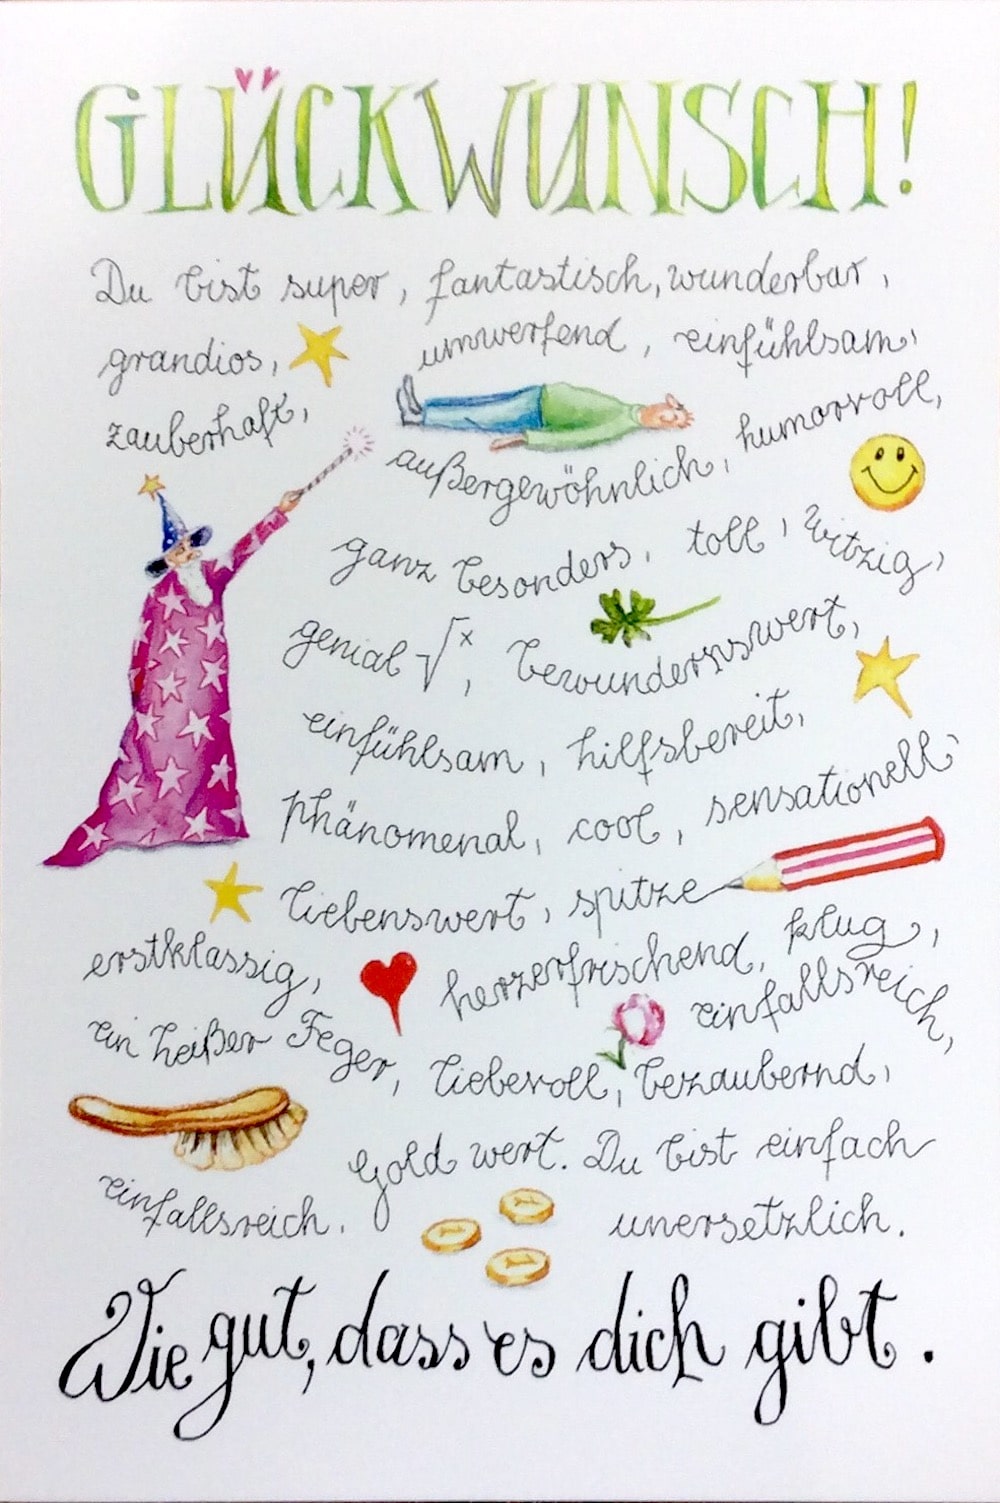 GLÜCKWUNSCH!
Du bist super, fantastisch, wunderbar,
grandios, umwerfend, einfühlsam,
zauberhaft,
außergewöhnlich, humorvoll,
ganz besonders, toll, witzig,
genial √x, bewundernswert,
einfühlsam, hilfsbereit,
phänomenal, cool, sensationell,
liebenswert, spitze
erstklassig, herzerfrischend, klug,
ein heißer Feger, liebevoll, einfallsreich,
bezaubernd,
einfallsreich, Gold wert. Du bist einfach
unersetzlich.
Wie gut, dass es dich gibt.